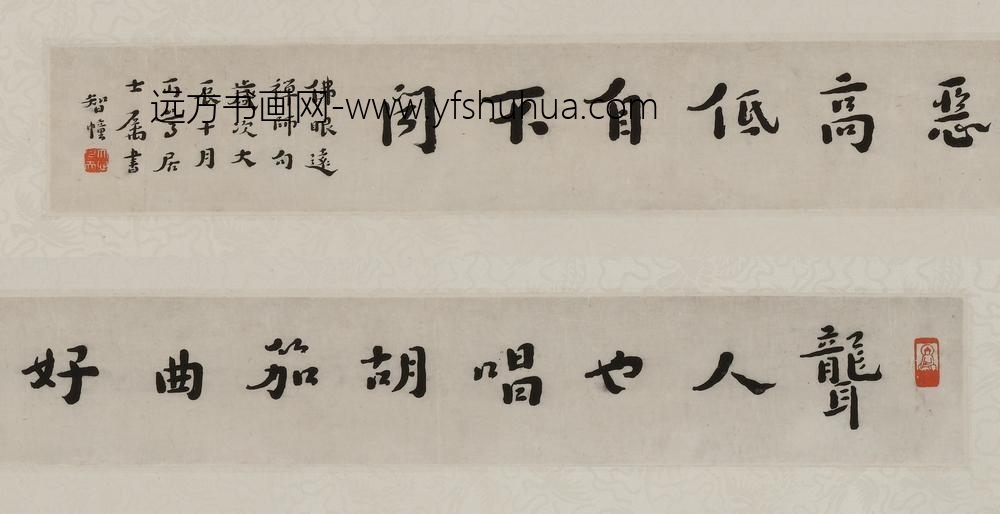 聾人也唱胡笳曲好
惡高低自不聞
佛眼遠
禪師句
歲次大
辰十月
丏尊居
士屬書
智幢
远方书画网-www.yfshuhua.com